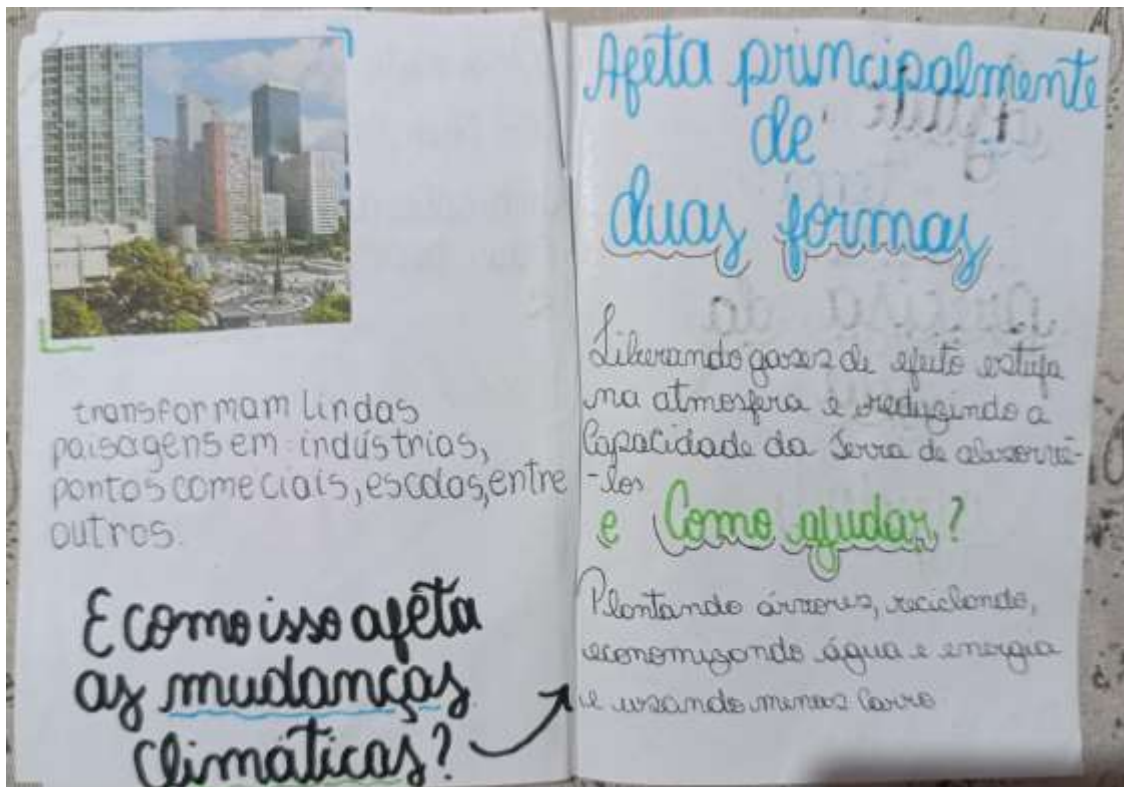 transformam lindas
paisagens em indústrias,
pontos comeciais, escolas, entre
outros.
E como isso afeta
as mudanças
climáticas?
Afeta principalmente
de
duas formas
Liberando gases de efeito estufa
na atmosfera e reduzindo a
Capacidade da Terra de absorvê-
-los
e Como ajudar?
Plantando árvores, reciclando,
economizando água e energia
e usando menos carro